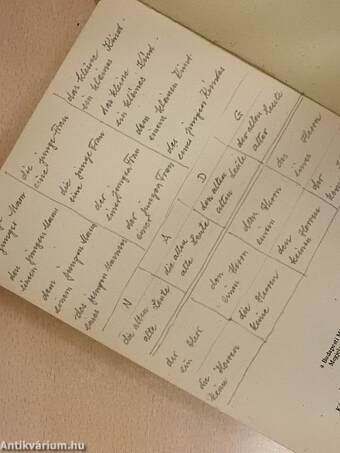 junge Mann die junge Frau das kleine Kind
junger Mann eine junge Frau ein kleines Kind
den jungen Mann die junge Frau das kleine Kind
einen jungen Mann eine junge Frau ein kleines Kind
dem jungen Mann der jungen Frau dem kleinen Kind
einem jungen Mann einer jungen Frau einem kleinen Kind
des jungen Mannes der jungen Frau des jungen Kindes
eines jungen Mannes einer jungen Frau eines
N A D G
die alten Leute die alten Leute den alten Leute der alten Leute
alte Leute alte Leute alten alter
der Herr den Herrn dem Herrn des Herrn
ein einen einem eines
die Herren die Herren den Herren der
keine keine keinen
a Budapesti M
Antikvárium.hu